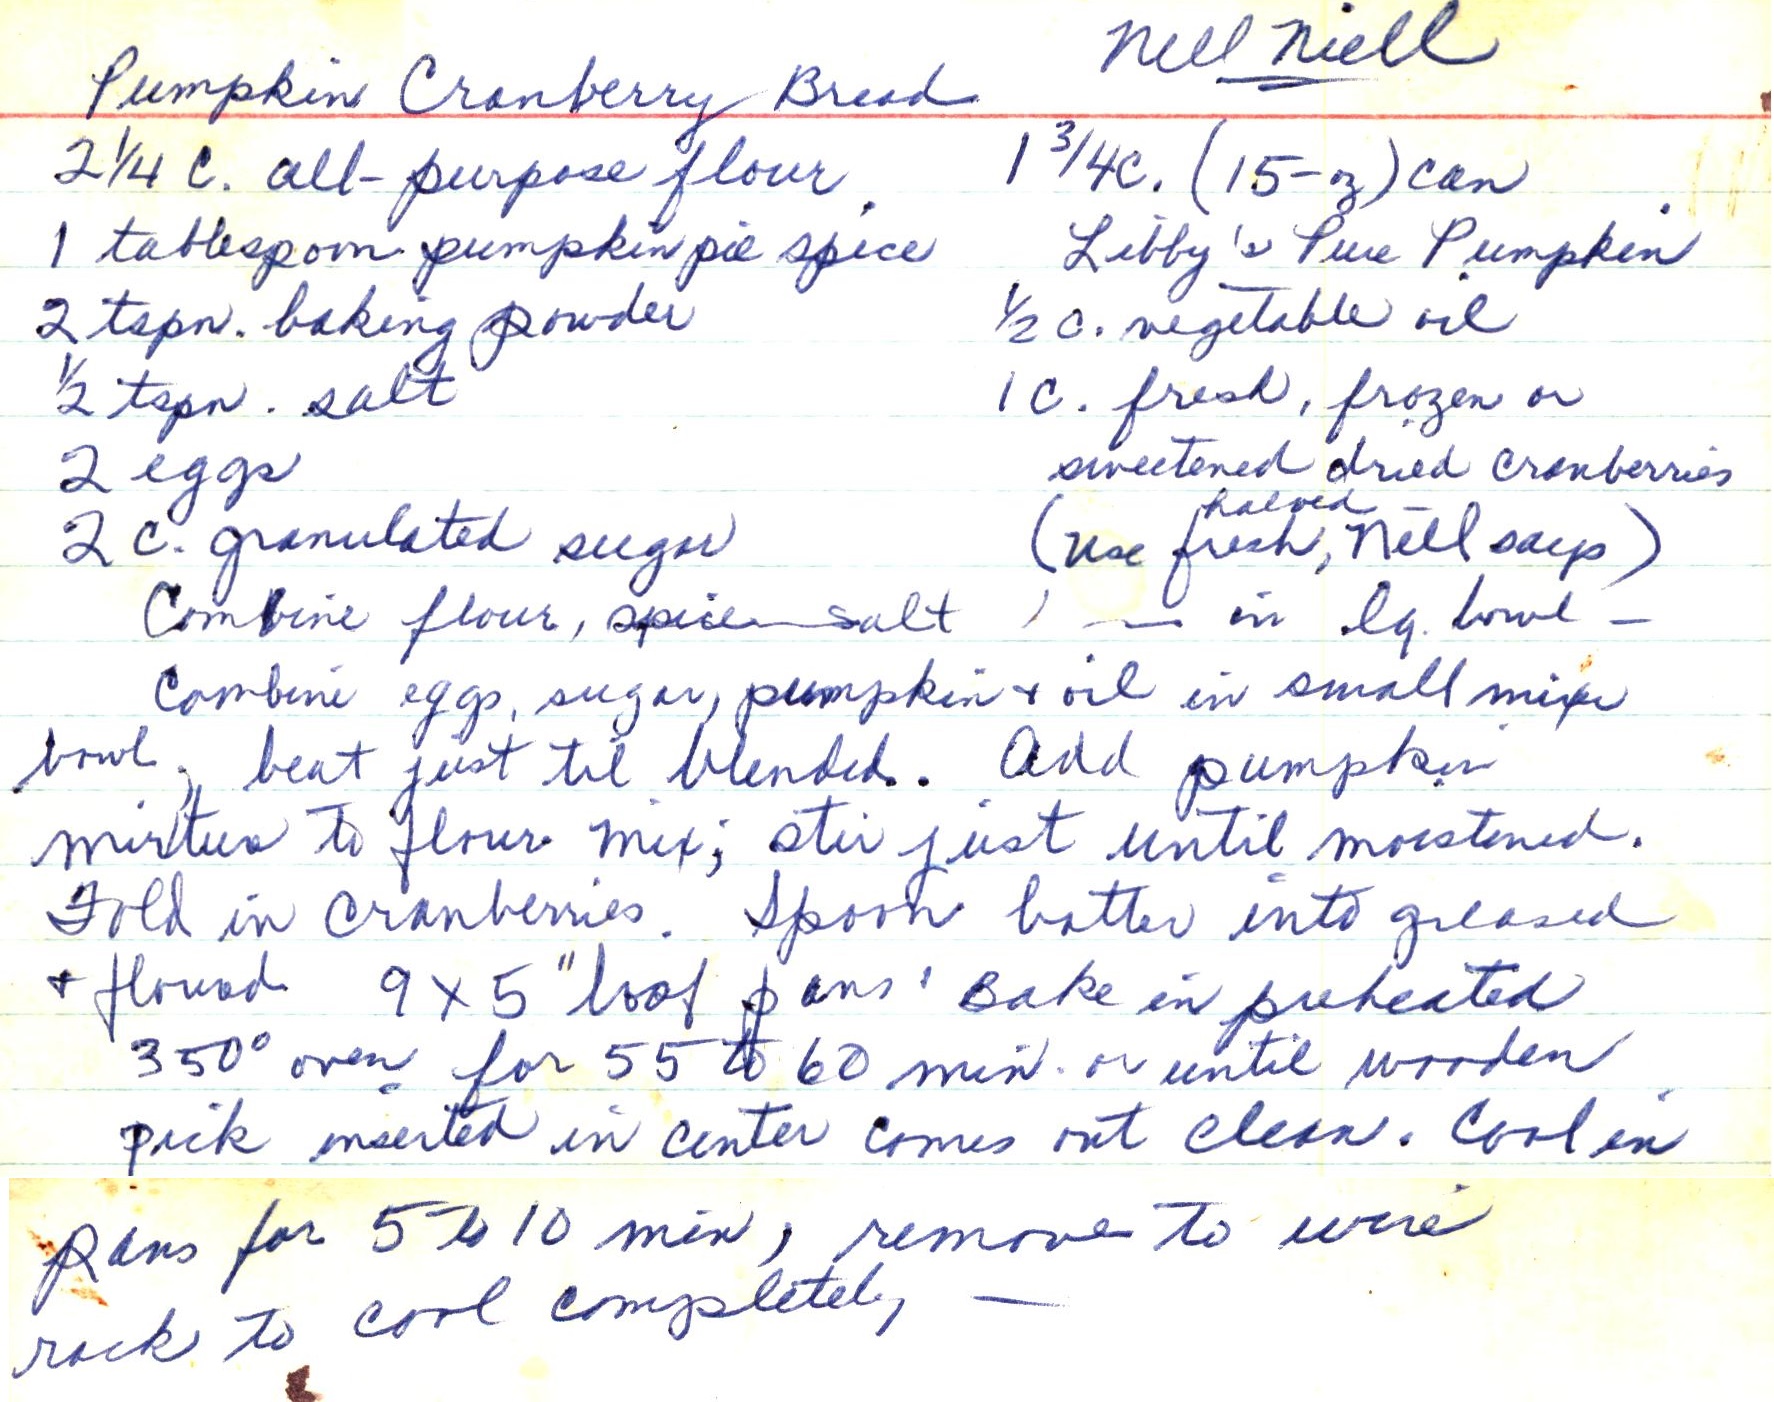 Nell Niell
Pumpkin Cranberry Bread
2 1/4 C. all-purpose flour
1 tablespoon pumpkin pie spice
2 tspn. baking powder
1/2 tspn. salt
2 eggs
2 C. granulated sugar
1 3/4 C. (15-oz) can
Libby's Pure Pumpkin
1/2 C. vegetable oil
1 C. fresh, frozen or
sweetened dried cranberries
halved
(use fresh, Nell says)
Combine flour, spice salt, — in lg. bowl —
Combine eggs, sugar, pumpkin + oil in small mixer
bowl; beat just til blended. Add pumpkin
mixture to flour mix; stir just until moistened.
Fold in cranberries. Spoon batter into greased
+ floured 9 x 5" loaf pans. Bake in preheated
350° oven for 55 to 60 min. or until wooden
pick inserted in center comes out clean. Cool in
pans for 5 to 10 min; remove to wire
rack to cool completely —